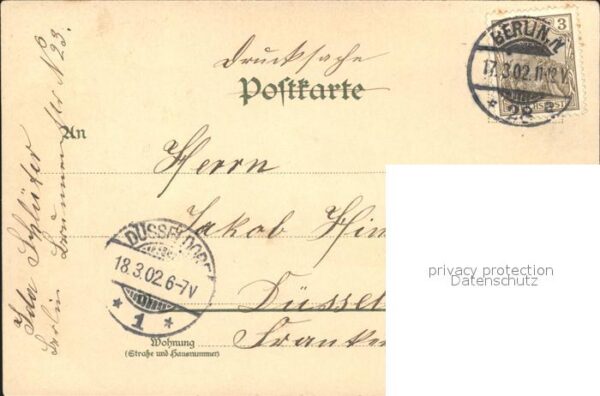 Drucksache
Postkarte
BERLIN. N.
17.3.02.11-12V.
* 28 a *
3
REICHSPOST
An
Herrn
Jakob
Düssel
Franken
DÜSSELDORF
18.3.02.6-7V.
* 1 *
Wohnung
(Straße und Hausnummer)
Ida Schlüter
Berlin Brunnenstr N° 23.
privacy protection
Datenschutz